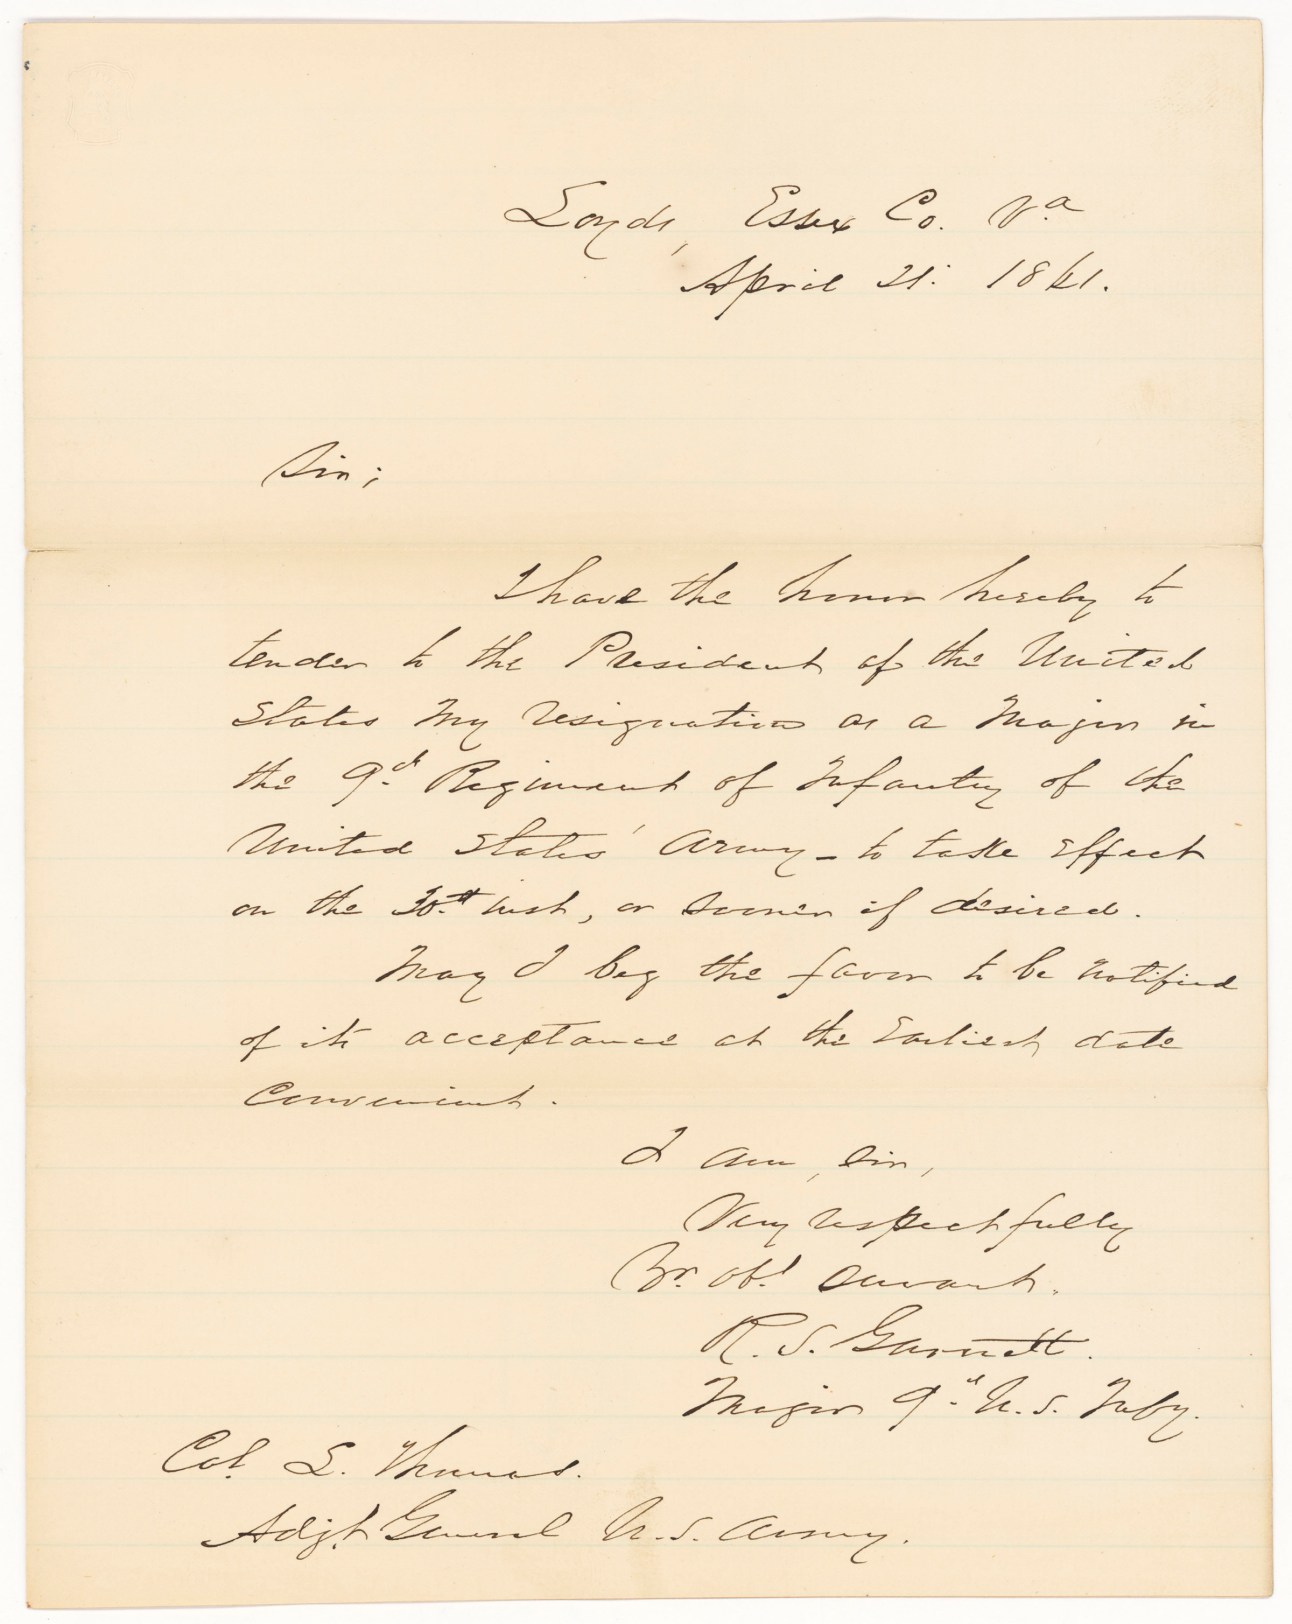 Loyds, Essex Co. Va
April 21. 1861.
Sir;
I have the honor hereby to
tender to the President of the United
States my resignation as a Major in
the 9th Regiment of Infantry of the
United States' Army - to take effect
on the 30th inst, or sooner if desired.
May I beg the favor to be notified
of its acceptance at the Earliest date
convenient.
I am, Sir,
Very respectfully
Yr. obt servant.
R. S. Garnett.
Major 9th U. S. Infy.
Col. L. Thomas.
Adjt General U. S. Army.